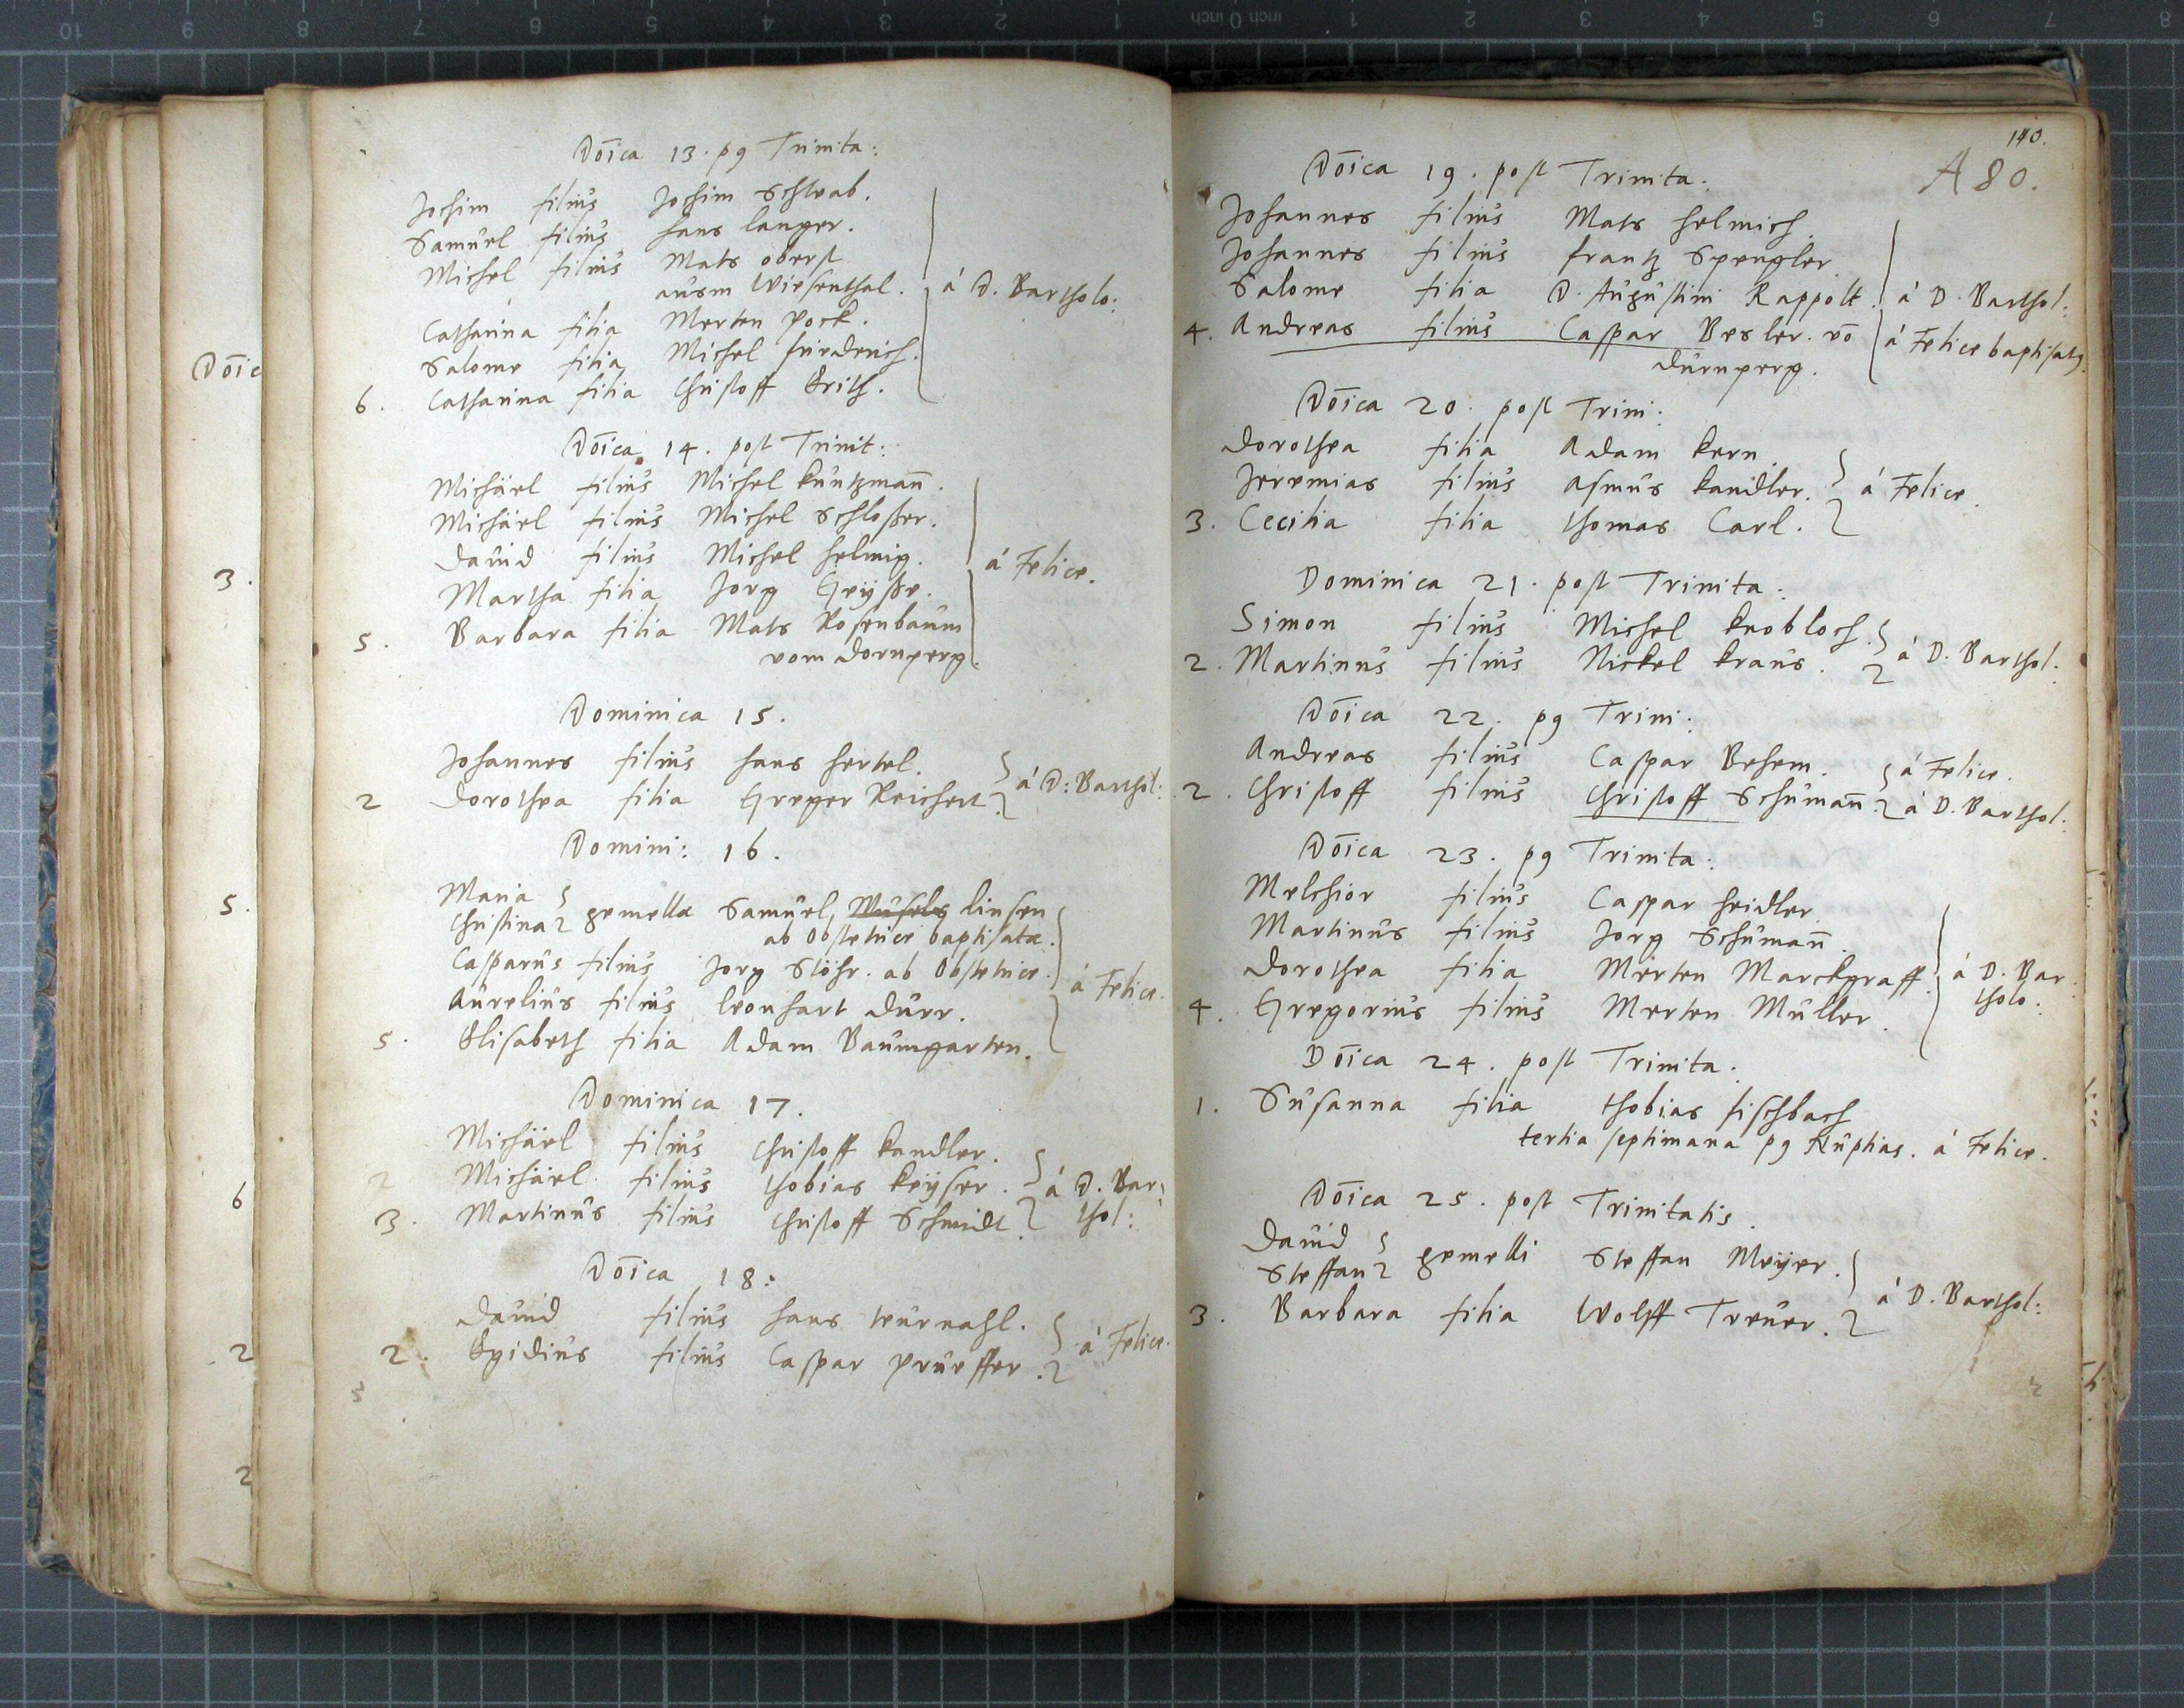 Dōica 13. pg Trinita:
Jochim filius Jochim Schwab.
Samuel filius Hans langer.
Michel filius Mats oberst
ausm Wiesenthal. á D. Bartholo:
Catharina filia Merten pock.
Salome filia Michel friederich.
6. Catharina filia Christoff Erith.
Dōica 14. post Trinit:
Michäel filius Michel kuntzman̄.
Michäel filius Michel Schloßer.
David filius Michel helmig.
Martha filia Jorg Geyßr. á Felice.
5. Barbara filia Mats Rosenbaum
vom dornperg.
Dominica 15.
Johannes filius Hans hertel.
2 Dorothea filia Greger Reichert. á D: Barthol:
Domini: 16.
Maria
Christina gemellæ Samuel linsen
ab obstetrice baptisatæ.
Casparus filius Jorg Stöhr. ab obstetrice.
Aurelius filius leonhart durr. á Felice.
5. Elisabeth filia Adam Baumgarten.
Dominica 17.
Michäel filius Christoff kandler.
2 Michäel filius thobias keyser. á D. Bar:
3. Martinus filius Christoff Schmidt. thol:
Dōica 18:
David filius Hans wurnahl.
2. Egidius filius Caspar prueffer. á Felice.
Dōic
3.
5.
6
2
2
140.
A 80.
Dōica 19. post Trinita:
Johannes filius Mats helmich.
Johannes filius frantz Spengler.
Salome filia D. Augustini Rappolt. á D. Barthol:
4. Andreas filius Caspar Besler. vō á Felice baptisatg.
durnperg.
Dōica 20. post Trini:
Dorothea filia Adam kern.
Jeremias filius Asmus kandler. á Felice.
3. Cecilia filia thomas Carl.
Dominica 21. post Trinita:
Simon filius Michel knobloch.
2. Martinus filius Nickel kraus. á D. Barthol:
Dōica 22. pg Trini:
Andreas filius Caspar Behem. á Felice.
2. Christoff filius Christoff Schuman̄. á D. Barthol:
Dōica 23. pg Trinita:
Melchior filius Caspar heidler.
Martinus filius Jorg Schuman̄.
Dorothea filia Merten Marckgraff. á D. Bar
4. Gregorius filius Merten Muller. tholo:
Dōica 24. post Trinita:
1. Susanna filia thobias fischbach
tertia septimana pg Nuptias. á Felice.
Dōica 25. post Trinitatis.
David
Steffan gemelli Steffan Meyer.
3. Barbara filia Wolff Treuer. á D. Barthol: